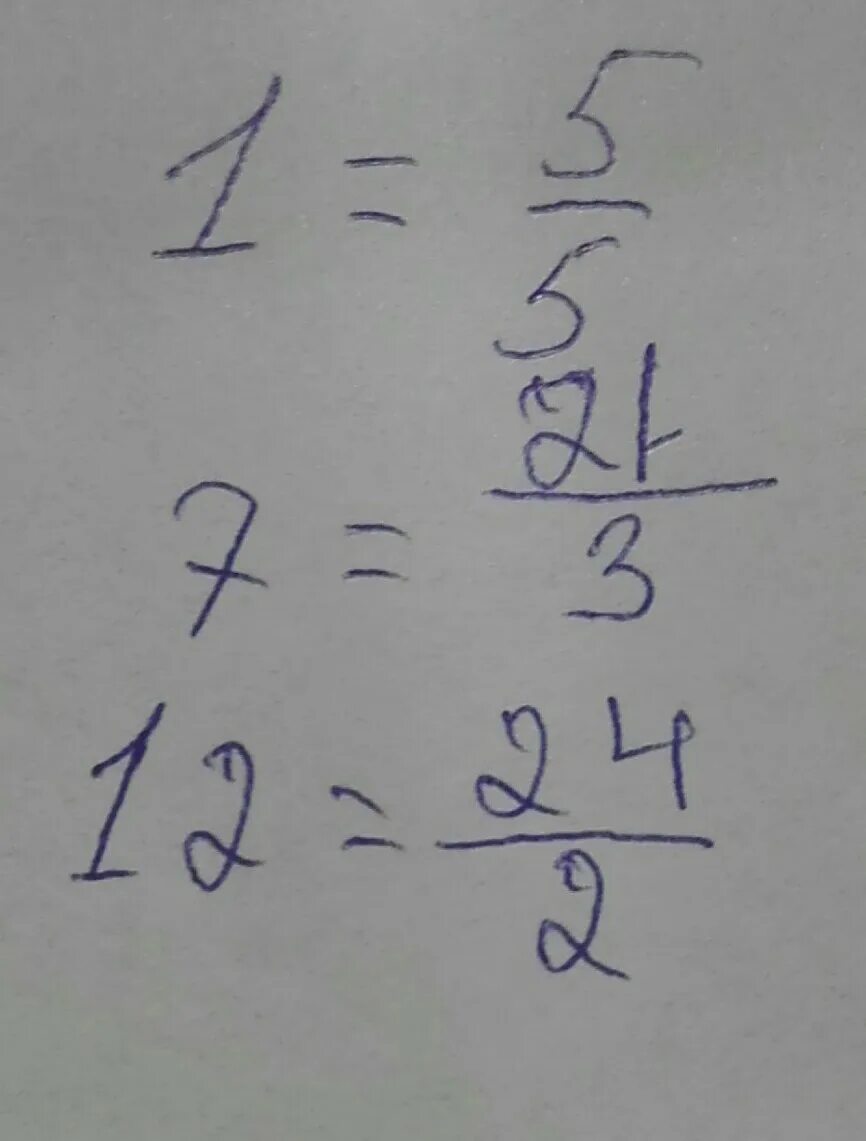 1 = 5/5
7 = 21/3
12 = 24/2